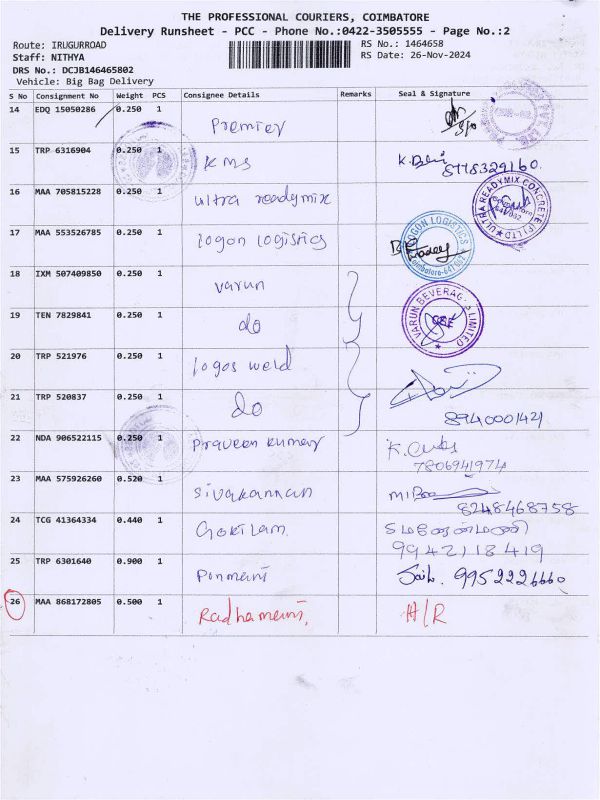 THE PROFESSIONAL COURIERS, COIMBATORE
Delivery Runsheet - PCC - Phone No.:0422-3505555 - Page No.:2
Route: IRUGURROAD
Staff: NITHYA
DRS No.: DCJB146465802
Vehicle: Big Bag Delivery
RS No.: 1464658
RS Date: 26-Nov-2024
S No Consignment No Weight PCS Consignee Details Remarks Seal & Signature
14 EDQ 15050286 0.250 1 Premier
15 TRP 6316904 0.250 1 KMS
16 MAA 705815228 0.250 1 ultra readymix
ULTRA READYMIX CONCRETE (P) LTD
17 MAA 553526785 0.250 1 logon logistics
LOGON LOGISTICS
Coimbatore-641
18 IXM 507409850 0.250 1 varun
19 TEN 7829841 0.250 1 do
VARUN BEVERAG LIMITED
20 TRP 521976 0.250 1 logos weld
21 TRP 520837 0.250 1 do
8940001421
22 NDA 906522115 0.250 1 Praveen kumar
7806941974
23 MAA 575926260 0.520 1 Sivakannan
8248468758
24 TCG 41364334 0.440 1 Gokilam
9942118419
25 TRP 6301640 0.900 1 Ponmani
9952226660
26 MAA 868172805 0.500 1 Radhamani, H/R